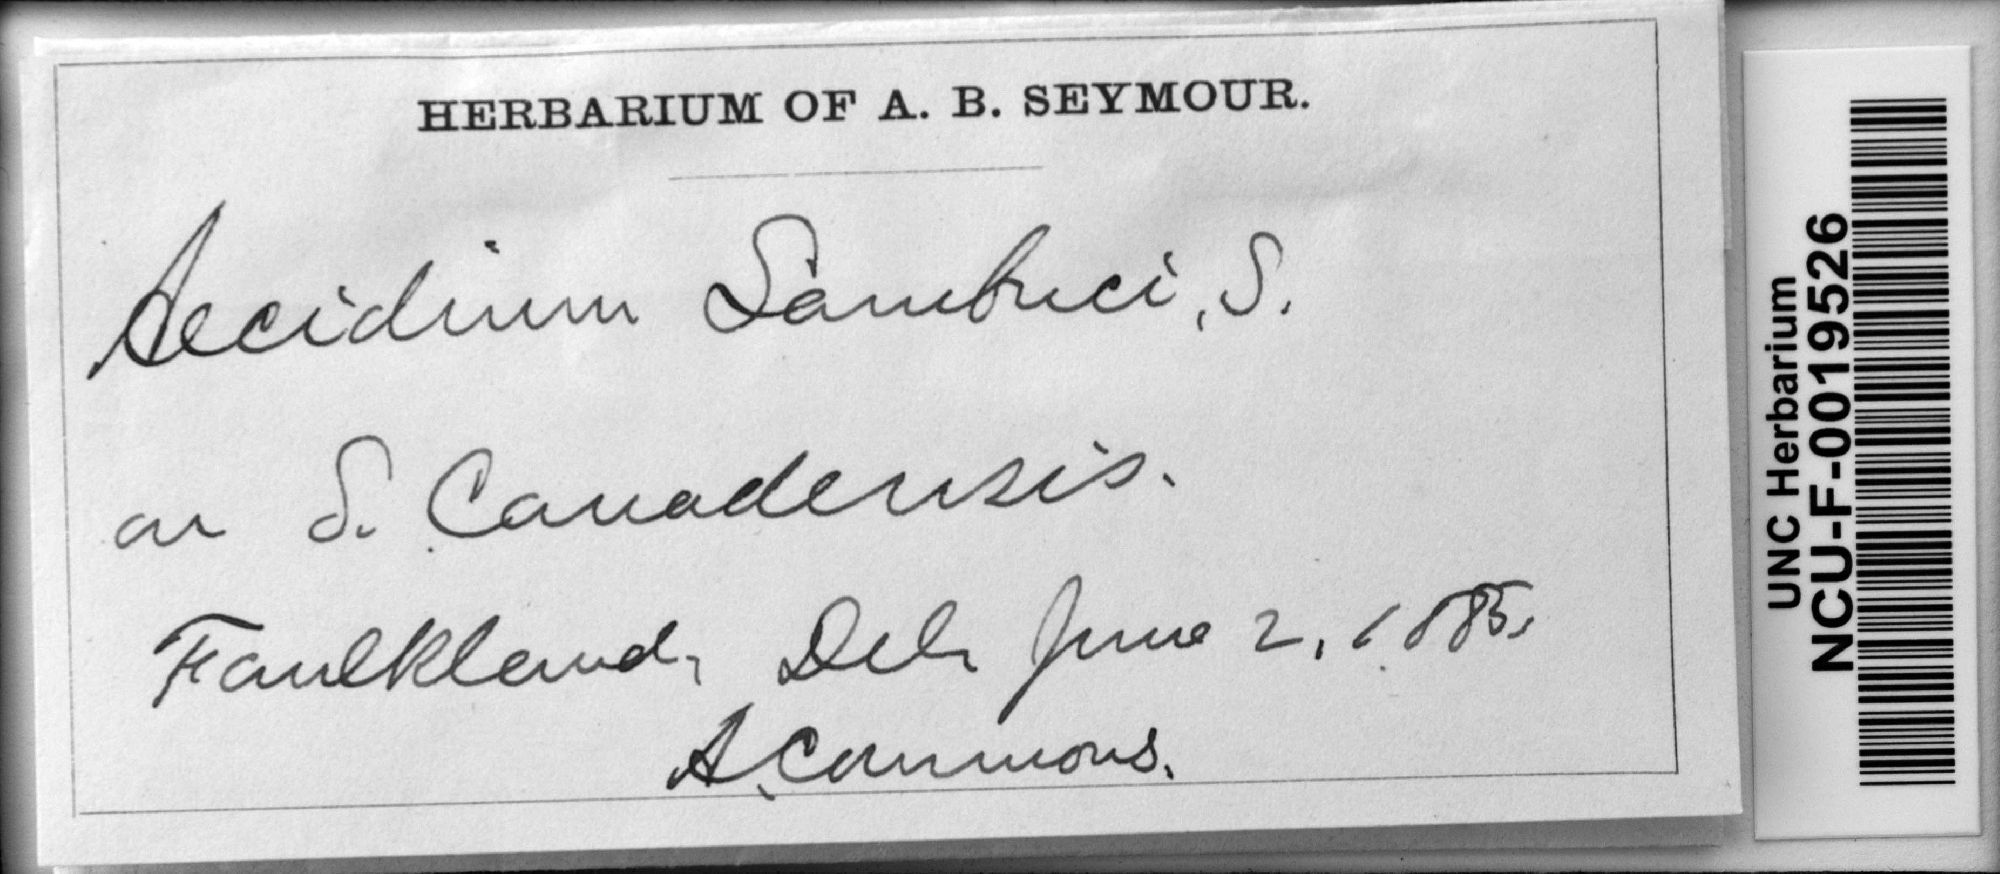 HERBARIUM OF A. B. SEYMOUR.
Aecidium Sambuci, S.
on S. Canadensis.
Faulkland, Del. June 2, 1885.
A. Commons.
UNC Herbarium
NCU-F-0019526